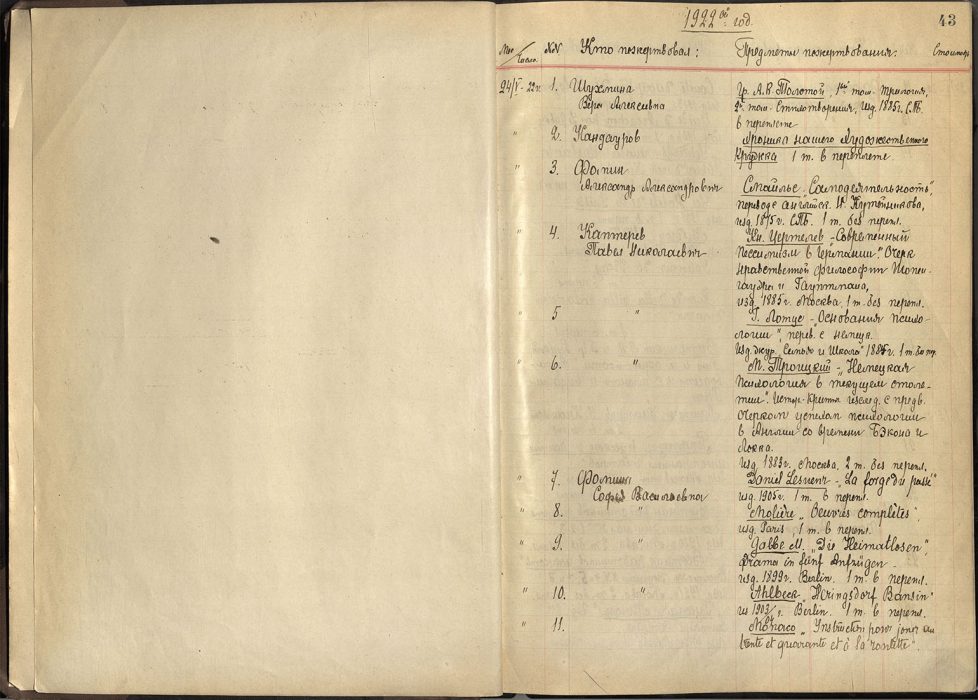 1922ой год.
43
Мес./Число
NN
Кто пожертвовал:
Предметы пожертвования:
Стоимость
24/V-22г.
1. Шухмина
Вера Алексеевна
Гр. А. К. Толстой, 1ый том. Трилогия,
2й том. Стихотворения, изд. 1885г. С.П.
в переплете
" 2. Кандауров
Хроника нашего Художественного
Кружка 1 т. в переплете.
" 3. Фомин
Александръ Александровичъ
Смайльс. "Самодеятельность",
перевод с английск. Н. Кутейникова,
изд. 1875г. С.Пб. 1 т. без перепл.
" 4. Каптерев
Павел Николаевич
Кн. Цертелев - "Современный
пессимизм в Германии." Очерк
нравственной философии Шопен-
гауера и Гартмана,
изд. 1885г. Москва, 1 т. без перепл.
" 5 "
Г. Лотце - "Основания психо-
логии", перев. с немецк.
изд. жур. "Семья и Школа" 1884г. 1 т. без пер.
" 6. "
М. Троицкий - "Немецкая
психология в текущем столе-
тии". Истор.-критич. исслед. с предв.
очерком успехов психологии
в Англии со времени Бэкона и
Локка.
изд. 1883г. Москва, 2 т. без перепл.
" 7. Фомина
Софья Васильевна
Daniel Lesueur - "La force du passé"
изд. 1905г. 1 т. в перепл.
" 8. "
Molière "Oeuvres complètes",
изд. Paris, 1 т. в перепл.
" 9. "
Gabbe M. "Die Heimatlosen",
Drama in fünf Aufzügen -
изд. 1899г. Berlin. 1 т. в перепл.
" 10. "
Ahlbeck "Heringsdorf Bansin"
из 1903/04 Berlin. 1 т. в перепл.
" 11.
Monaco "Instruction pour jouer au
trente et quarante et à la roulette".